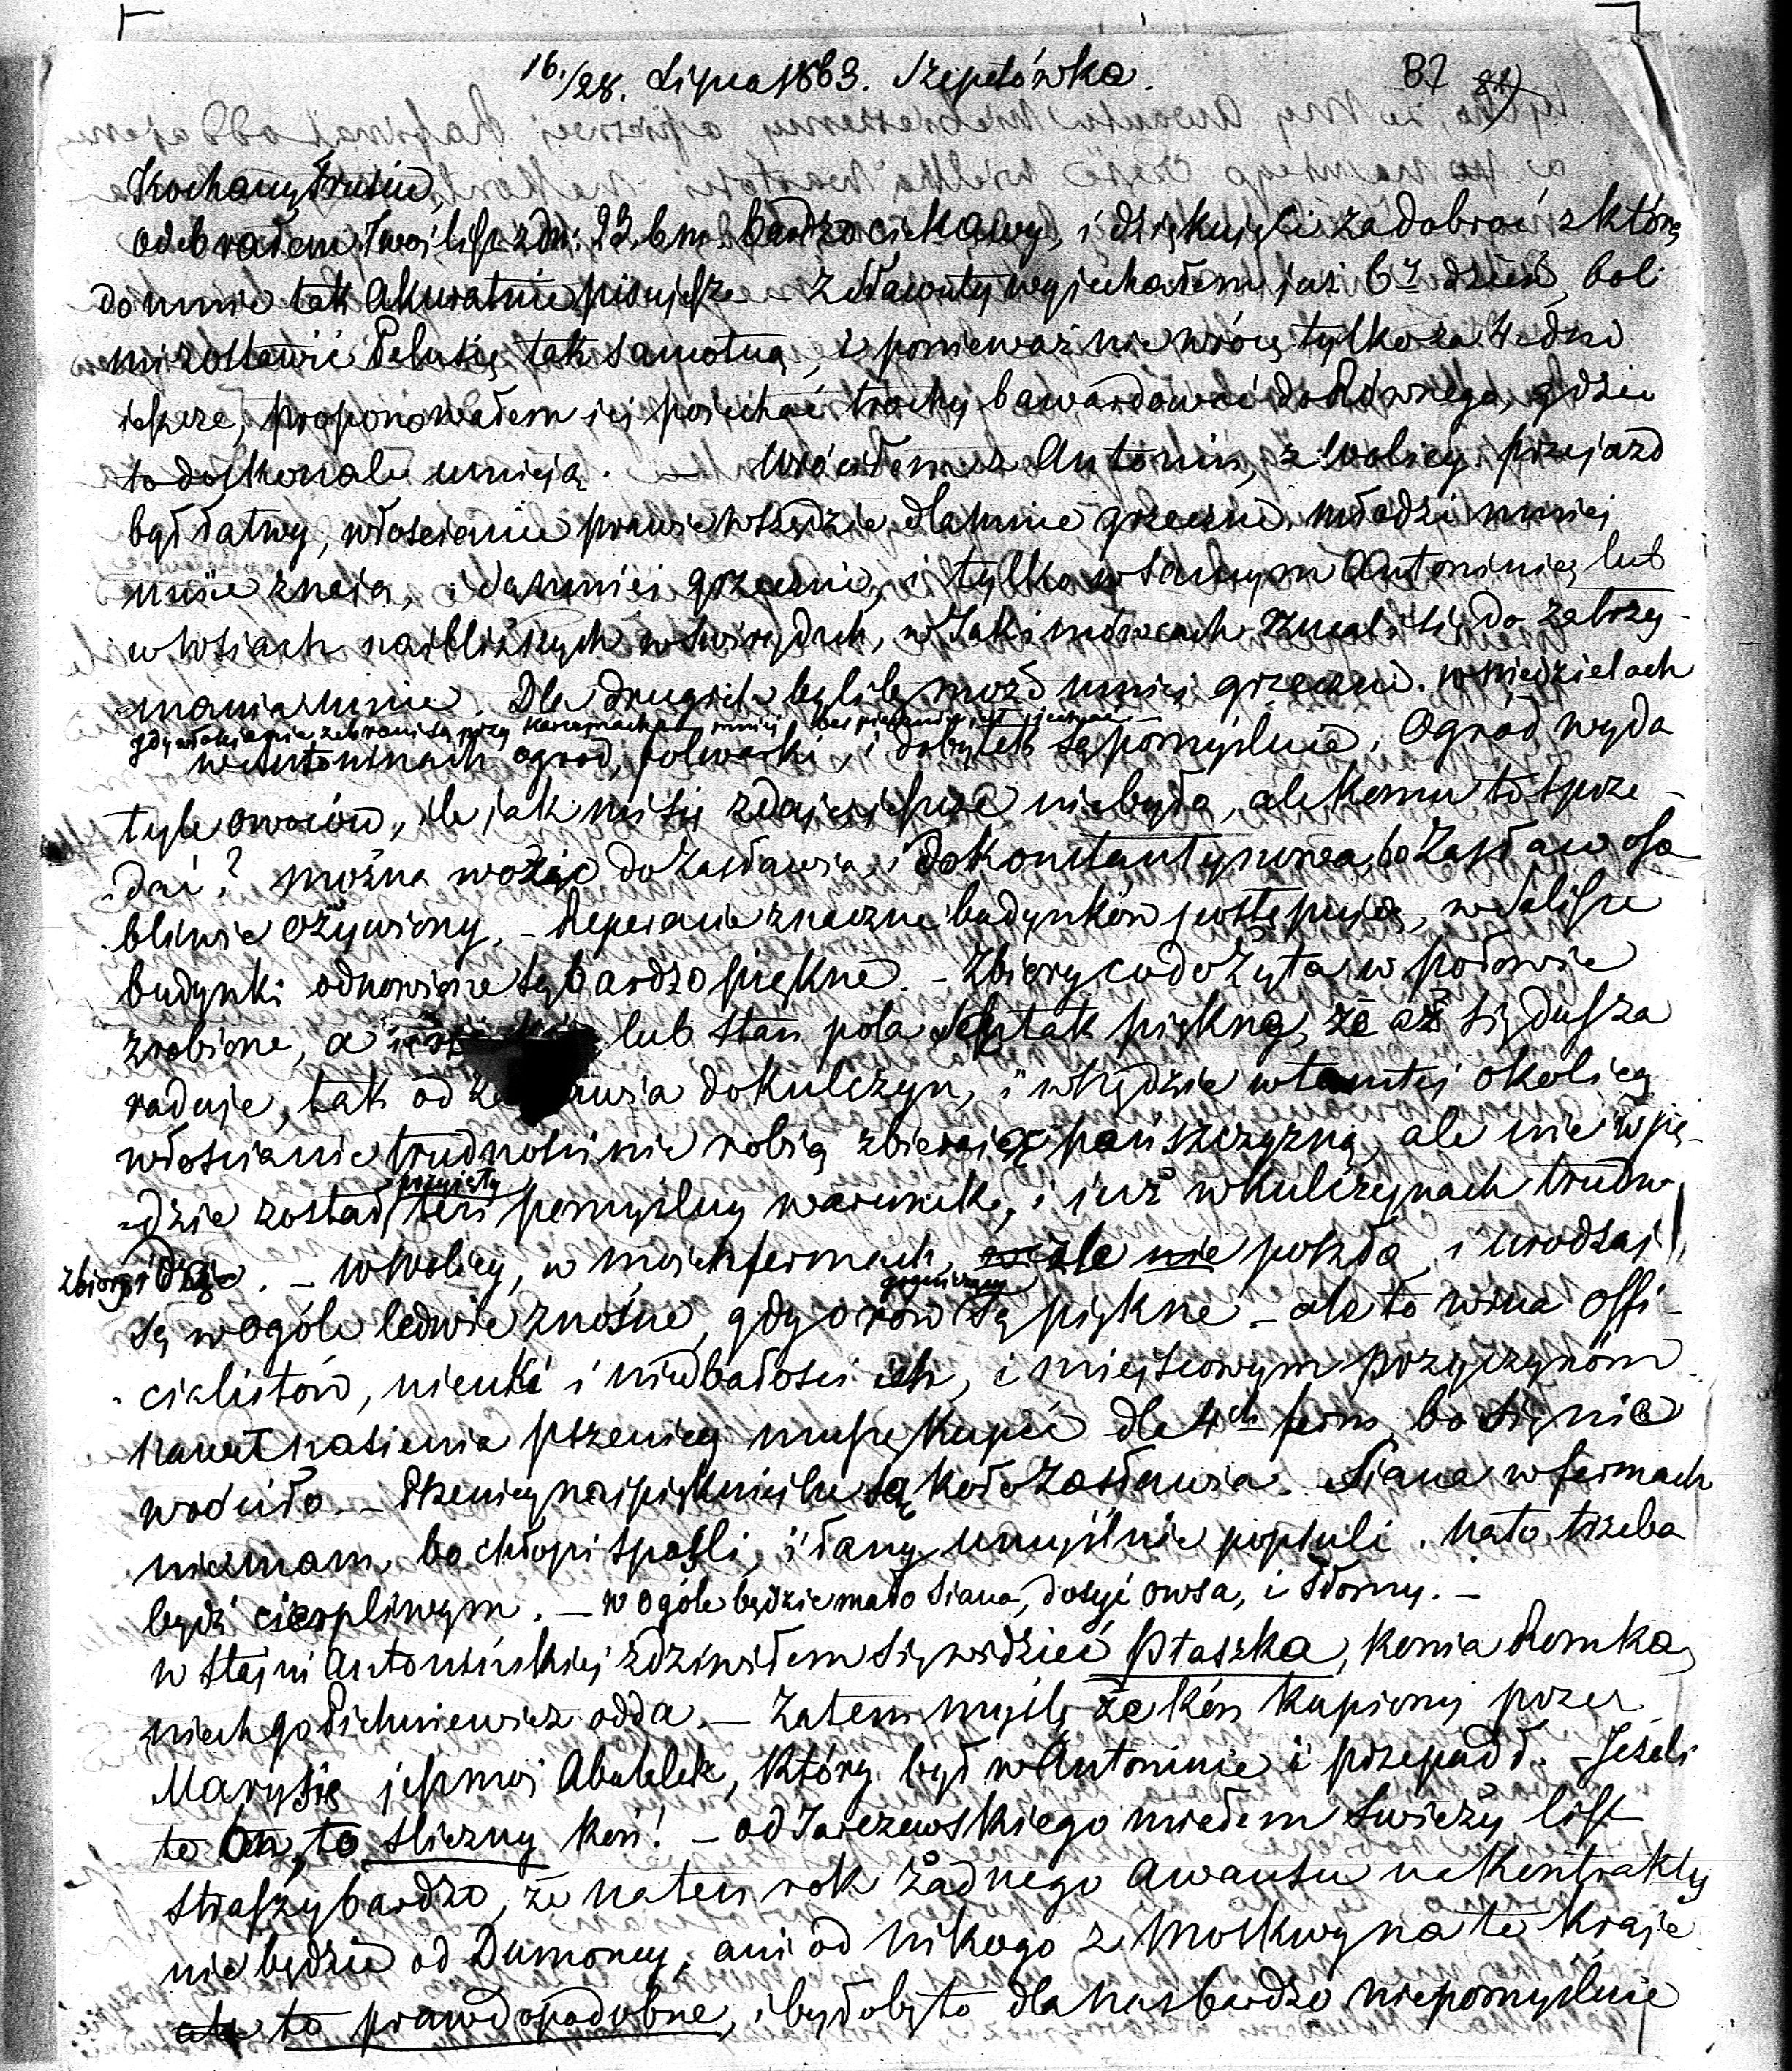 16./28. Lipca 1863. Szepetówka. 87
Kochany
odebrałem Twój list z dn: 23. b.m. bardzo ciekawy, i dziękuję Ci za dobroć z którą
do mnie tak akuratnie pisujesz – z Sławuty wyjechałem już 6y dzień, boli
mi zostawić Pelusię tak samotną, i ponieważ nie wrócę tylko za 4 dni
jeszcze, proponowałem jej pojechać trochę bawardować do Równego, gdzie
to doskonale umieją. – Wróciłem z Antonin, z Wolicy. przejazd
był łatwy, włościanie prawie wszędzie dla mnie grzeczni, młodzi mniej
mnie znają, i są mniej grzeczni, i tylko w samym Antoninie, lub
w wsiach najbliższych w Swinędzch, w Jakimowcach rzucali się do zatrzy-
mania mnie. Dla drugich byliby może mniej grzeczni. w niedzielach
gdy włościanie zebrani są przy karczmach mniej bezpiecznie jest jechać. –
w Antoninach ogród, folwarki, i dobytek są pomyślnie, Ogród wyda
tyle owoców, ile jak mi się zdaje jeszcze nie było, ale komu to sprze-
dać? można wożąc do Zasławia, i do Konstantynowa, bo Zasław oso
bliwie ożywiony. – Reperacie znaczne budynków postępują, w
budynki odnowione są bardzo piękne. – Zbiory co do żyta w połowie
zrobione, a lub stan pola tak piękny, że aż się dusza
raduje, tak od do Kulczyn, i wszędzie w tamtej okolicy
włościanie trudności nie robią zbierając pańszczyzną, ale nie wszę-
dzie został przyjęty ten pomyślny warunek, i już w Kulczynach trudno
zbiory idą. – w Wolicy, w moich fermach, źle nie poszło, i urodzaj
są w ogóle ledwie znośne, gdy orów gromieckiey są piękne – ale to wina offi-
cialistów, nieuki i niedbałości ich, i miejscowym przyczynóm
nawet nasienia pszenicy muszę kupić dla 4ch ferm, bo się nie
wrodziło. – Pszenicy najpiękniejsze są koło Zasławia. Siana w fermach
nie mam, bo chłopi spaśli, i łany umyślnie popsuli. na to trzeba
być cierpliwym. – w ogóle będzie mało siana, dosyć owsa, i słomy. –
w stajni Antonińskiej zdziwiłem się widzieć Ptaszka, konia Romka,
niech go Pichniewicz odda. – Zatem myślę że koń kupiony przez
Marysię jest mój Abulelek, który był w Antoninie i przepadł. – Jeżeli
to On, to śliczny koń! – od Jarczewskiego miałem świeży list
straszy bardzo, że na ten rok żadnego awansu na kontrakty
nie będzie od Dumoncy, ani od nikogo z Moskwy na te kraje
to prawdopodobne, i byłoby to dla nas bardzo niepomyślnie